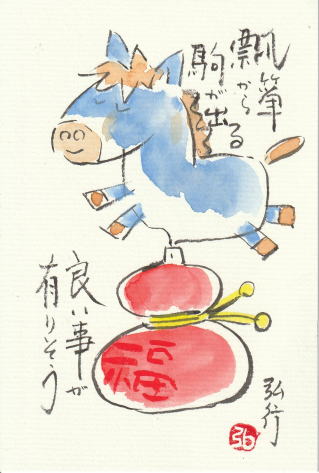 瓢箪
から
駒が出る
福
良い事が
有りそう
弘行
弘